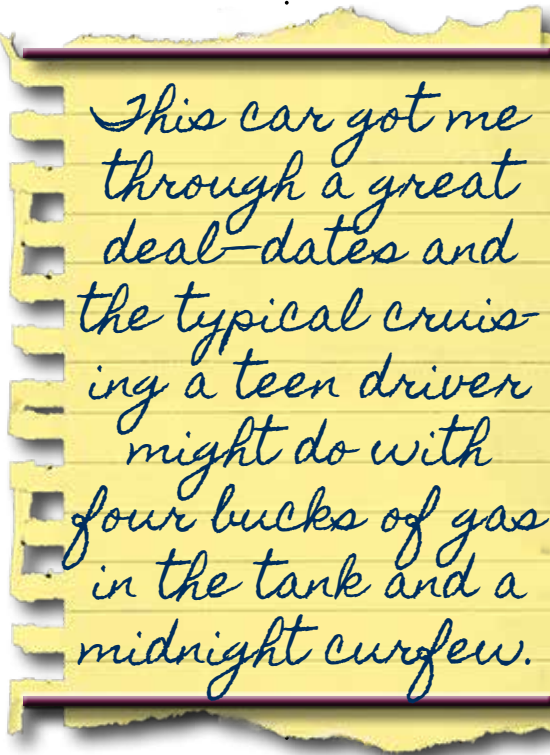 This car got me
through a great
deal—dates and
the typical cruis-
ing a teen driver
might do with
four bucks of gas
in the tank and a
midnight curfew.